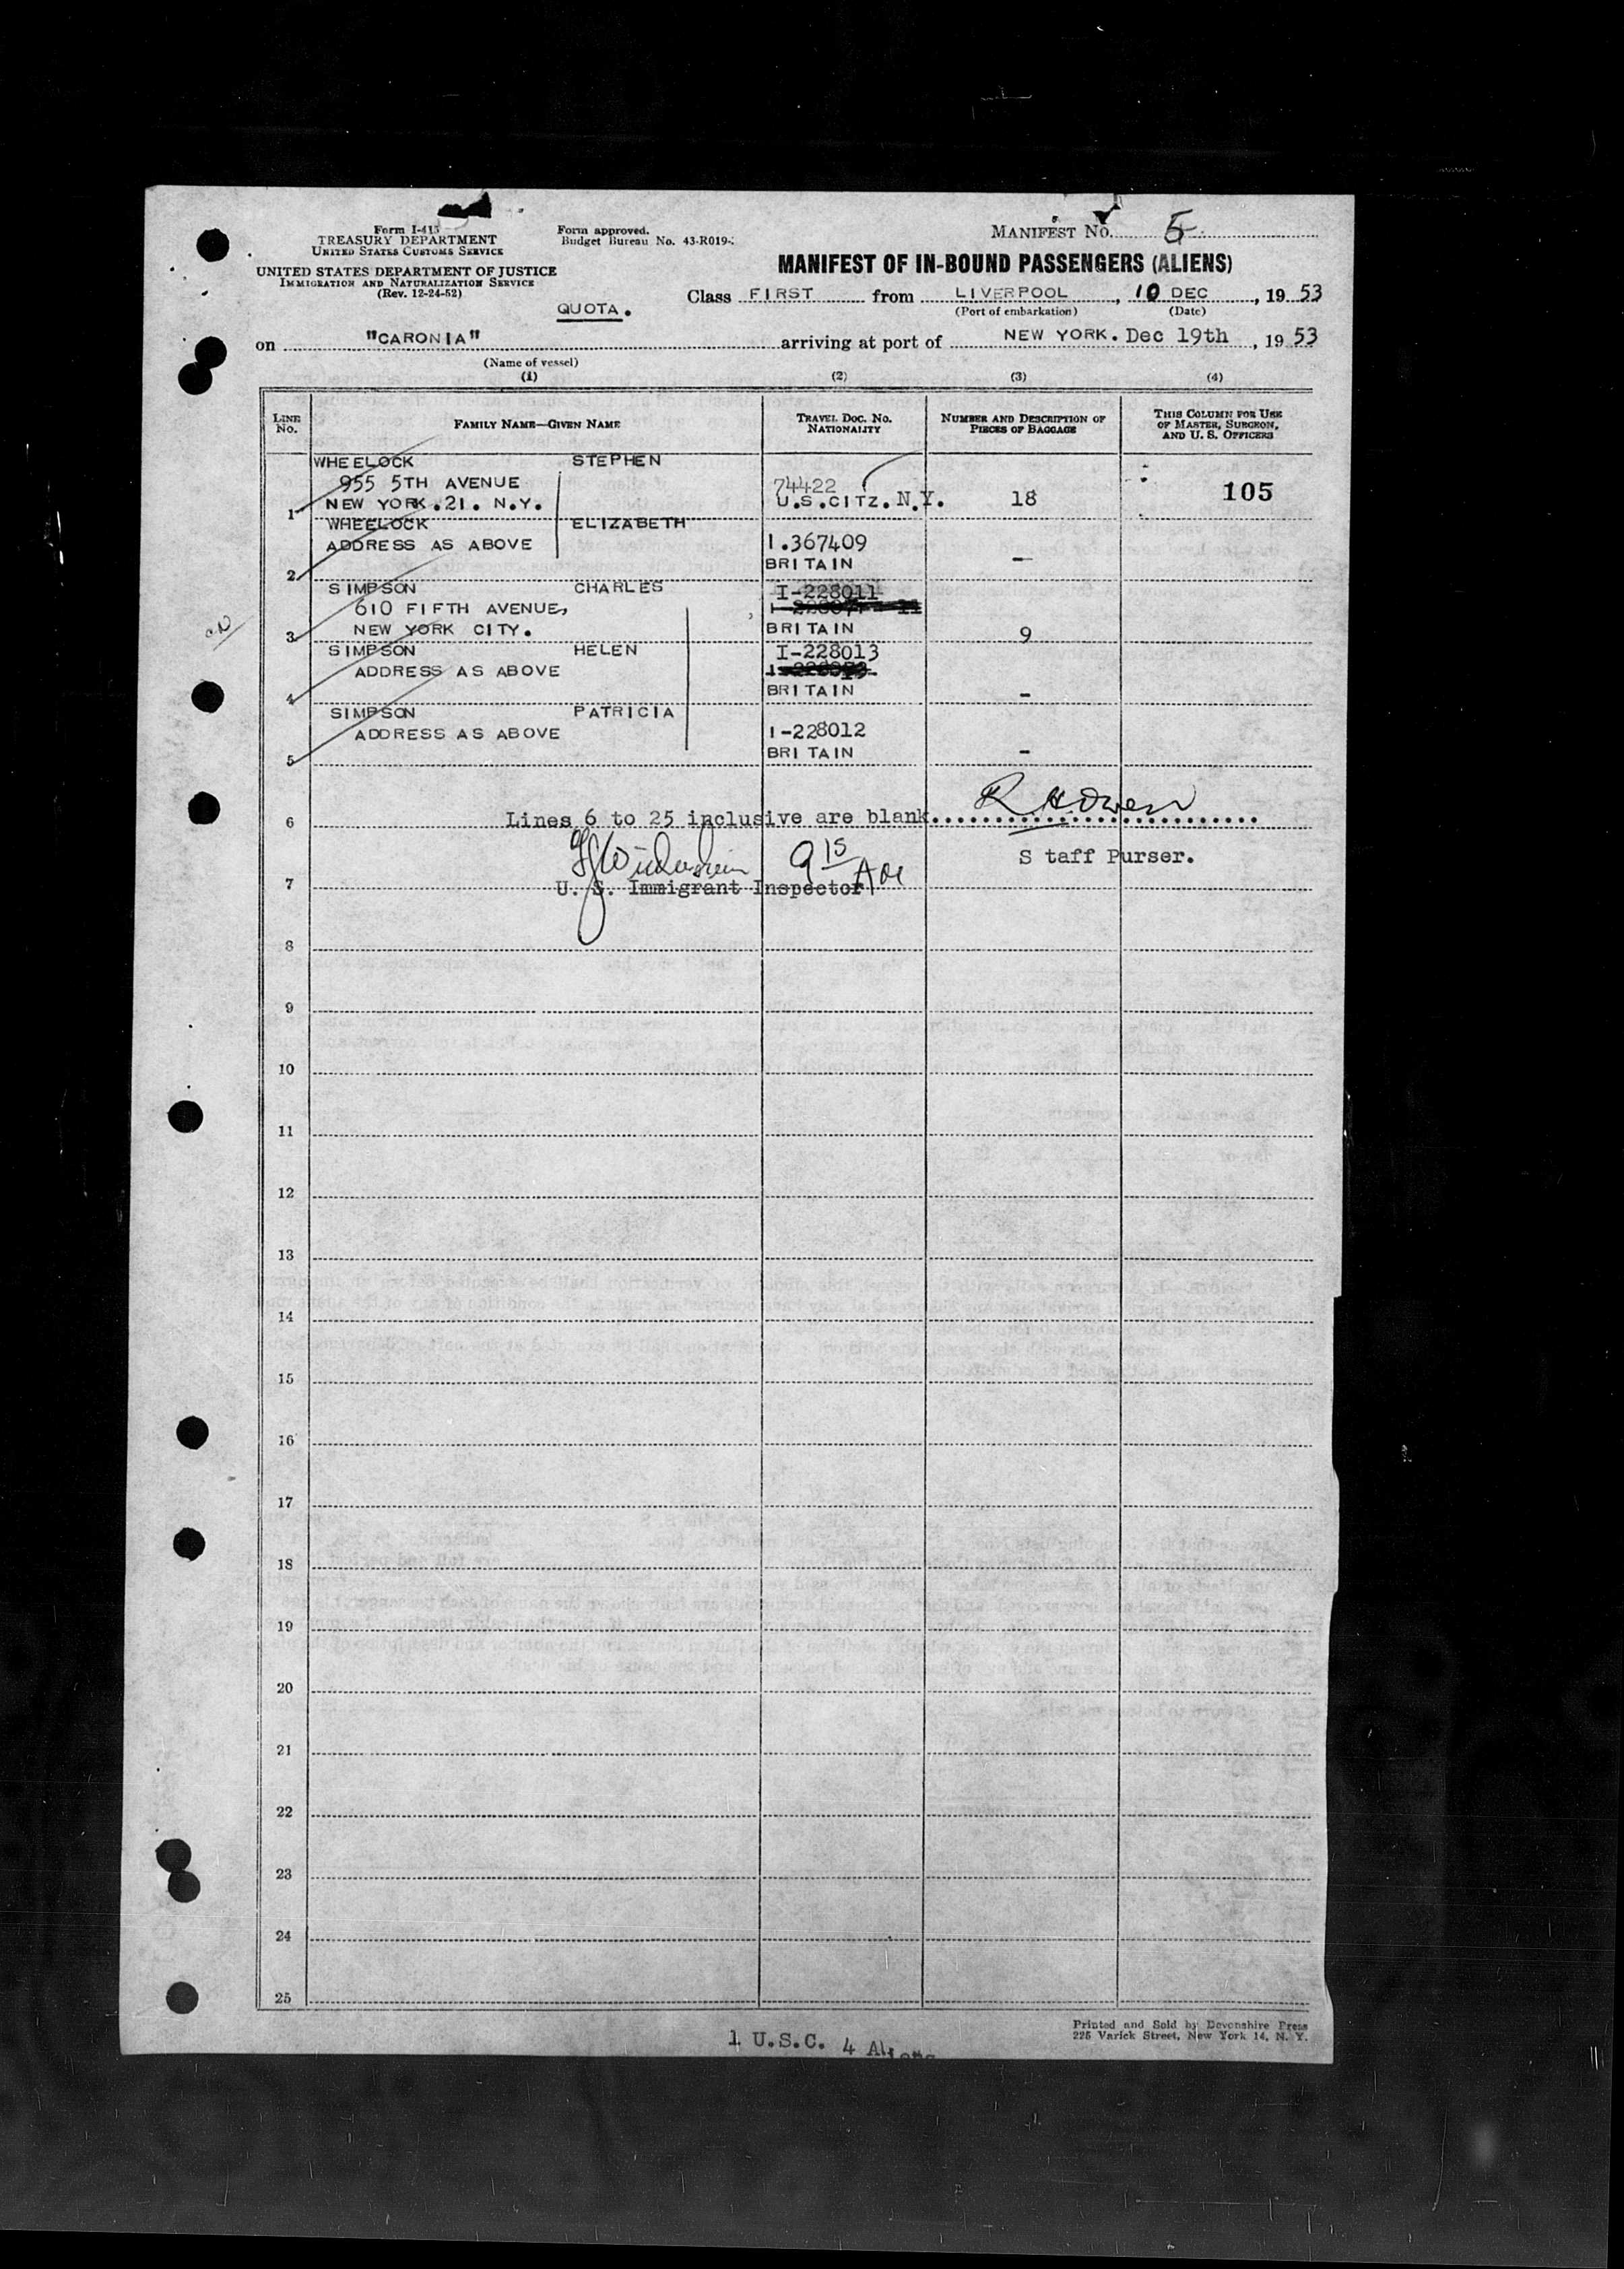 Form I-415
TREASURY DEPARTMENT
UNITED STATES CUSTOMS SERVICE
UNITED STATES DEPARTMENT OF JUSTICE
IMMIGRATION AND NATURALIZATION SERVICE
(Rev. 12-24-52)
Form approved.
Budget Bureau No. 43-R019-
MANIFEST NO. 5
MANIFEST OF IN-BOUND PASSENGERS (ALIENS)
QUOTA.
Class FIRST from LIVERPOOL, 10 DEC, 19 53
(Port of embarkation) (Date)
on "CARONIA" arriving at port of NEW YORK. Dec 19th, 19 53
(Name of vessel)
(1) (2) (3) (4)
LINE NO.
FAMILY NAME—GIVEN NAME
TRAVEL DOC. NO. NATIONALITY
NUMBER AND DESCRIPTION OF PIECES OF BAGGAGE
THIS COLUMN FOR USE OF MASTER, SURGEON, AND U. S. OFFICERS
WHEELOCK STEPHEN
955 5TH AVENUE 74422
1 NEW YORK.21. N.Y. U.S.CITZ.N.Y. 18 105
WHEELOCK ELIZABETH
ADDRESS AS ABOVE 1.367409
2 BRITAIN –
SIMPSON CHARLES I-228011
610 FIFTH AVENUE,
3 NEW YORK CITY. BRITAIN 9
SIMPSON HELEN I-228013
ADDRESS AS ABOVE
4 BRITAIN –
SIMPSON PATRICIA
ADDRESS AS ABOVE I-228012
5 BRITAIN –
6 Lines 6 to 25 inclusive are blank
S taff Purser.
9 15
7 U. S. Immigrant Inspector
8
9
10
11
12
13
14
15
16
17
18
19
20
21
22
23
24
25
Printed and Sold by Devonshire Press
225 Varick Street, New York 14, N. Y.
1 U.S.C. 4 Aliens